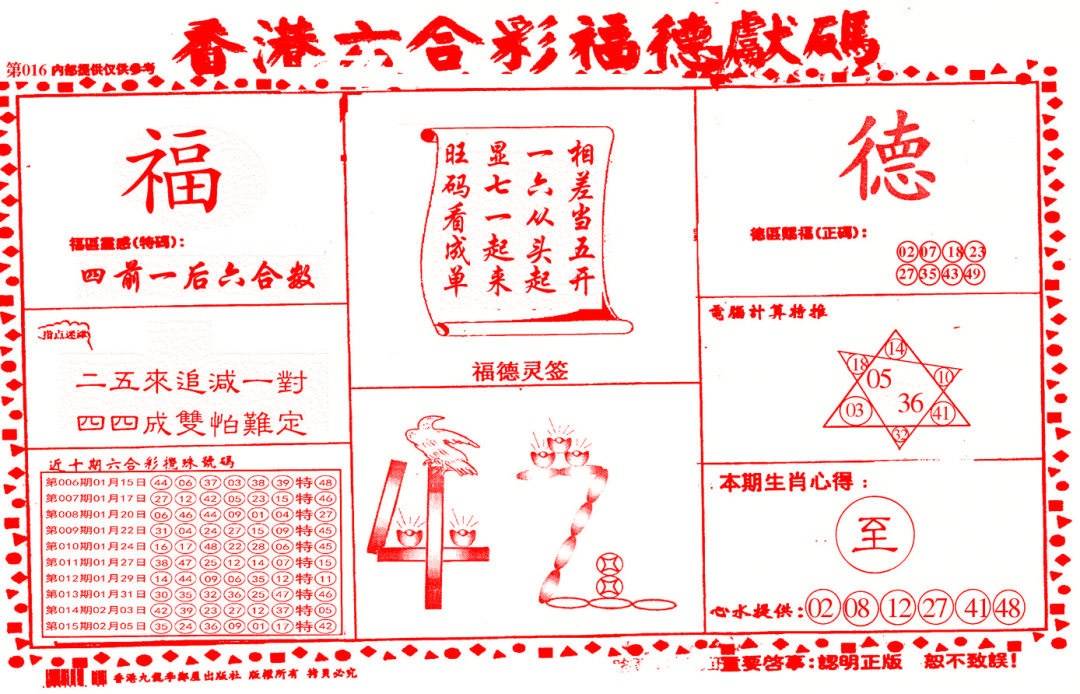 香港六合彩福德獻碼
第016 内部提供仅供参考
福
福區靈感(特碼):
四前一后六合数
指点迷津
二五來追減一對
四四成雙怕難定
近十期六合彩攪珠號碼
第006期01月15日 44 06 37 03 38 39 特 48
第007期01月17日 27 12 42 05 23 15 特 46
第008期01月20日 06 46 44 09 01 04 特 27
第009期01月22日 31 04 24 27 15 09 特 45
第010期01月24日 16 17 48 22 28 06 特 45
第011期01月27日 38 47 25 12 14 07 特 15
第012期01月29日 14 44 09 06 35 12 特 11
第013期01月31日 30 35 32 36 25 47 特 46
第014期02月03日 42 39 23 27 12 37 特 05
第015期02月05日 35 24 36 09 01 17 特 42
相差当五开
一六从头起
显七一起来
旺码看成单
福德灵签
德
德區賜福(正碼):
02 07 18 23
27 35 43 49
電腦計算特推
14
18
10
05
36
03
41
32
本期生肖心得:
至
心水提供: 02 08 12 27 41 48
香港九龍李鄭屋出版社 版權所有 拷貝必究
重要啓事:認明正版 恕不致誤!